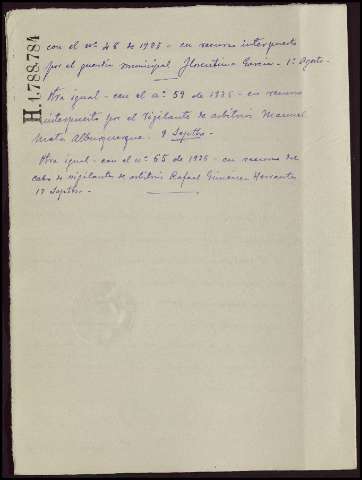 H.1.788.784
con el nº 48 de 1935 - en recurso interpuesto
por el guardia municipal Florentino Garcia - 1º Agosto -
Otra igual - con el nº 59 de 1935 - en recurso
interpuesto por el Vigilante de arbitrios Manuel
Mata Alburquerque. 9 Septbre -
Otra igual - con el nº 65 de 1935 - en recurso del
cabo de vigilantes de arbitrios Rafael Gimenez
17 Septbre -